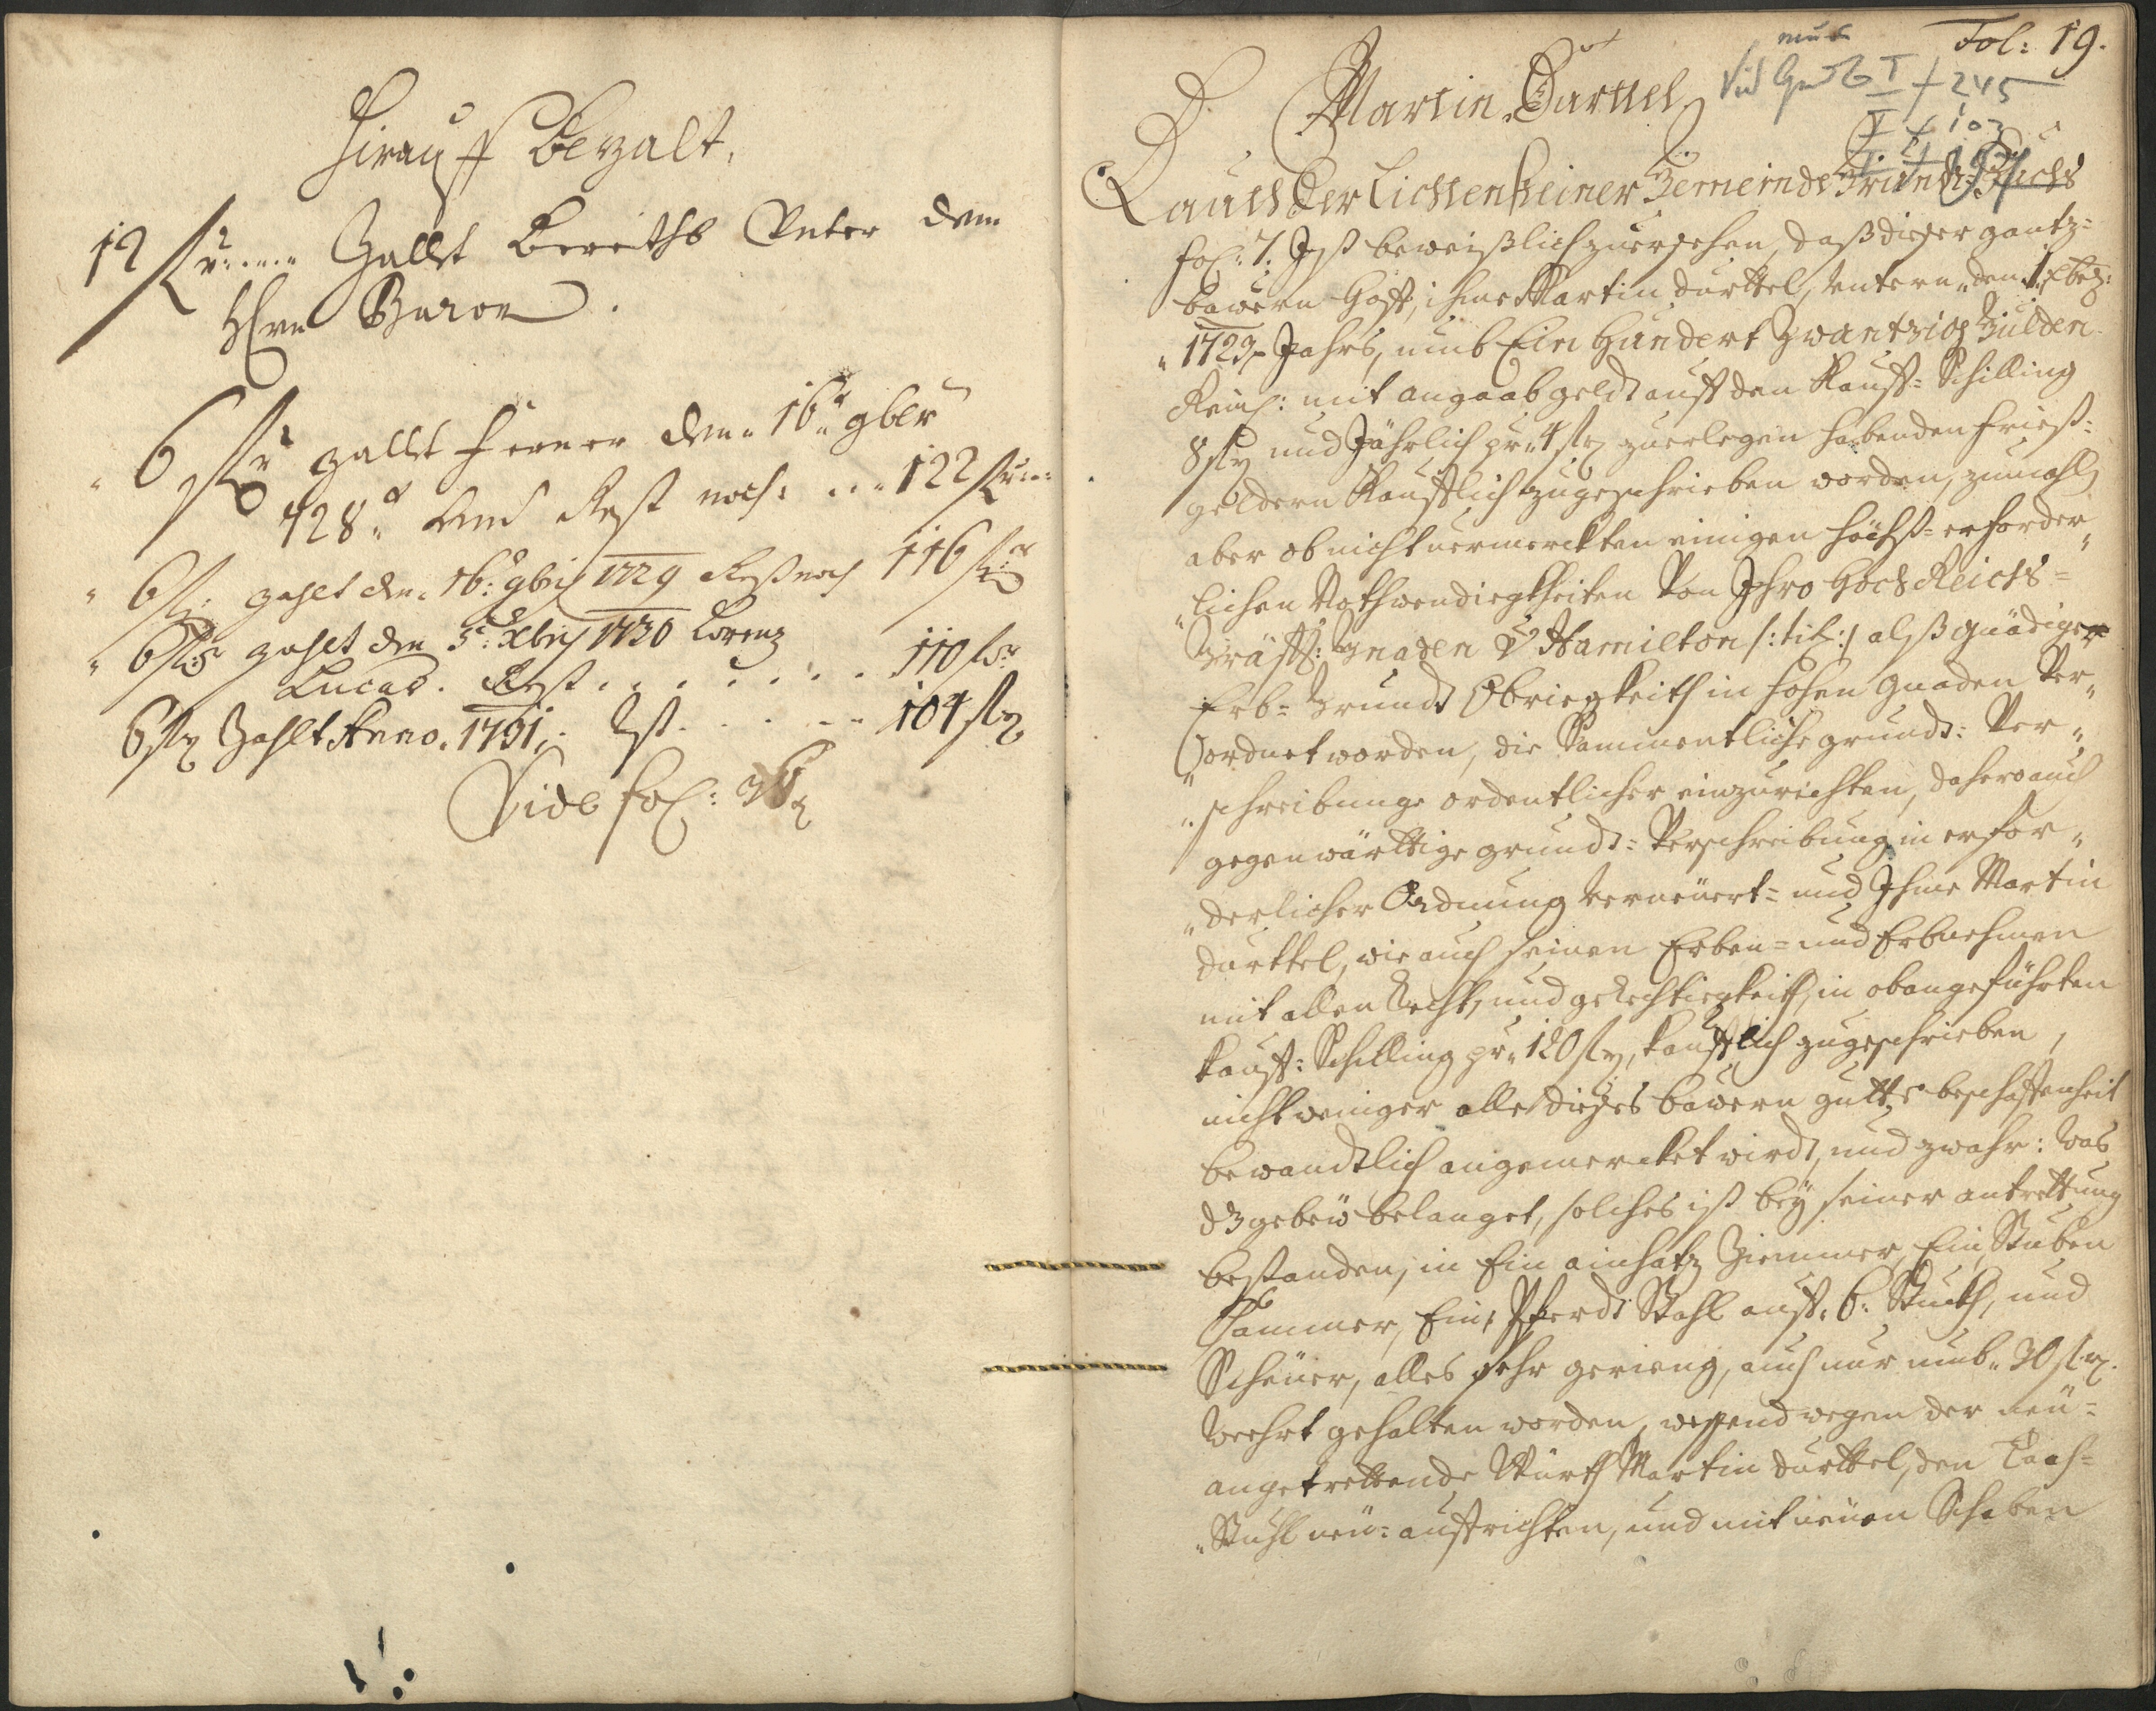 Hirauff Bezalt.
12 fl r: .... Zallt Bereiths Unter dem
Herrn Baron.
" 6 fl r zallt ferner den " 16 " 9ber
728 " und Rest noch: ... 122 fl r:
" 6 fl r: zahlt den 16: 9bris 1729 Rest noch 116 fl r
" 6 fl r zahlt den 5t: Xbris 1730 Lorenz
Lucas. Rest . . . . . . . 110 fl r
6 fl r Zahlt Anno. 1731, Rst. . . . . . 104 fl r
Vide fol:
Fol: 19.
Vid I f 245
V f 103
D. Martin Durttel
Lauth der Lichtensteiner Gemeinde Grundt-Buchs
fol: 7. Ist beweißlich zuersehen, daß dieser gantz=
bauern Hoff, ihme Martin Durttel, untern " den 1t Xbr:
" 1723 " Jahrs, umb Ein Hundert Zwantzig Gulden
Reinl: mit angaabgeldt auff den Kauff=Schilling
8 fl r und Jährlich pr " 4 fl r zuerlegen habenden frist=
geldern Kaufflich zugeschrieben worden, zumahl
aber ob nicht vermerckten einigen höchst=erforder"
"lichen Nothwendigkheiten Von Ihro Hoch Reichs=
Gräffl: Gnaden v Hamilton /:tit:/ alß gnädiger
Erb=Grundt Obriegkeith in hohen Gnaden Ver"
"ordnet worden, die Sammentliche grundt=Ver"
"schreibunge ordentlicher einzurichten, dahero auch
gegenwärttige grundt=Verschreibung in erfor"
"derlicher Ordnung Verneuert= und Ihme Martin
Durttel, wie auch seinen Erben= und Erbnehmen
mit allen Recht, und gerechtiegkeith, in obangeführten
Kauff=Schilling pr " 120 fl r, Kaufflich zugeschrieben,
nicht weniger alle dießes bauern gutts beschaffenheit
bewandtlich angemercket wirdt, und zwahr: Was
dz gebeü belanget, solches ist bey seiner antrettung
bestanden, in Ein einsatz Ziemmer, Ein Stuben
Cammer, Ein Pferdt Stahl auff 6: Stuckh, und
Scheuer, alles sehr gerieng, auch nur umb " 30 fl r.
Werht gehalten worden, wegen der neü=
angetrettende Würth Martin Durttel, den Taach=
"Stuhl neü=auffrichten, und mit neüen Schoben